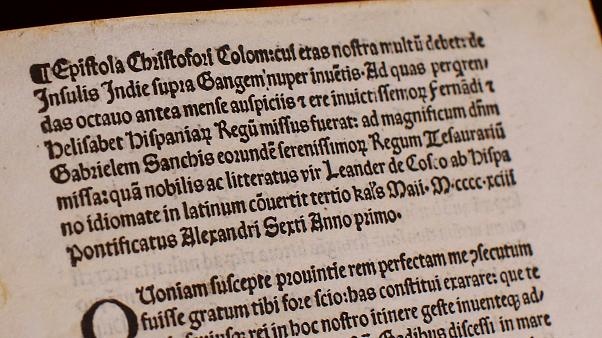 ¶ Epistola Christofori Colom: cui etas nostra multũ debet: de
Insulis Indie supra Gangem nuper inuẽtis. Ad quas perqren/
das octauo antea mense auspiciis ⁊ ere inuictissemoꝝ Fernãdi ⁊
Helisabet Hispaniaꝝ Regũ missus fuerat: ad magnificum dñm
Gabrielem Sanchis eorundẽ serenissimoꝝ Regum Tesaurariũ
missa: quã nobilis ac litteratus vir Leander de Cosco ab Hispa
no idiomate in latinum cõuertit tertio kal's Maii. M.cccc.xciii
Pontificatus Alexandri Sexti Anno primo.
QUoniam suscepte prouintie rem perfectam me ↄsecutum
fuisse gratum tibi fore scio: has constitui exarare: que te
rei in hoc nostro itinere geste inuenteqꝫ ad/
Gadibus discessi in mare